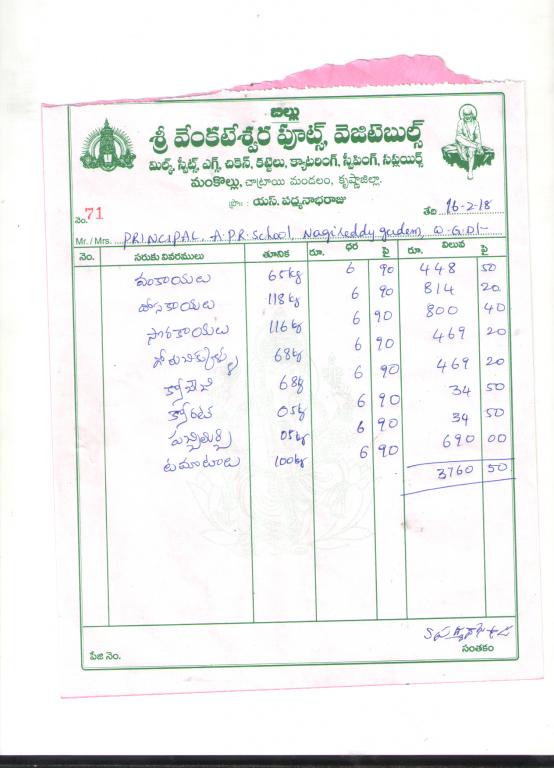 బిల్లు
శ్రీ వేంకటేశ్వర ఫూట్స్, వెజిటెబుల్స్
మిల్క్, స్వీట్స్, ఎగ్స్, చికెన్, కట్టెలు, క్యాటరింగ్, స్వీపింగ్, సప్లయర్స్
మంకొల్లు, చాట్రాయి మండలం, కృష్ణాజిల్లా.
ప్రొః యస్. పద్మనాభరాజు
నెం. 71 తేది 16-2-18
Mr. / Mrs. PRINCIPAL, A.P.R. School, Nagireddy gudem, W.G.Dt-
నెం. సరుకు వివరములు తూనిక రూ. ధర పై రూ. విలువ పై
వంకాయలు 65kg 6 90 448 50
దోసకాయలు 118kg 6 90 814 20
సొరకాయలు 116kg 6 90 800 40
గోరుచిక్కుళ్ళు 68kg 6 90 469 20
క్యాబేజి 68kg 6 90 469 20
క్యారెట్ 05kg 6 90 34 50
05kg 6 90 34 50
టమాటాలు 100kg 6 90 690 00
3760 50
పేజి నెం. సంతకం